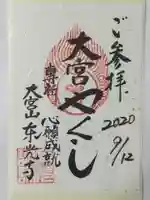 ご参拝
2020
9/12
大宮やくし
心願成就
大宮山東光寺